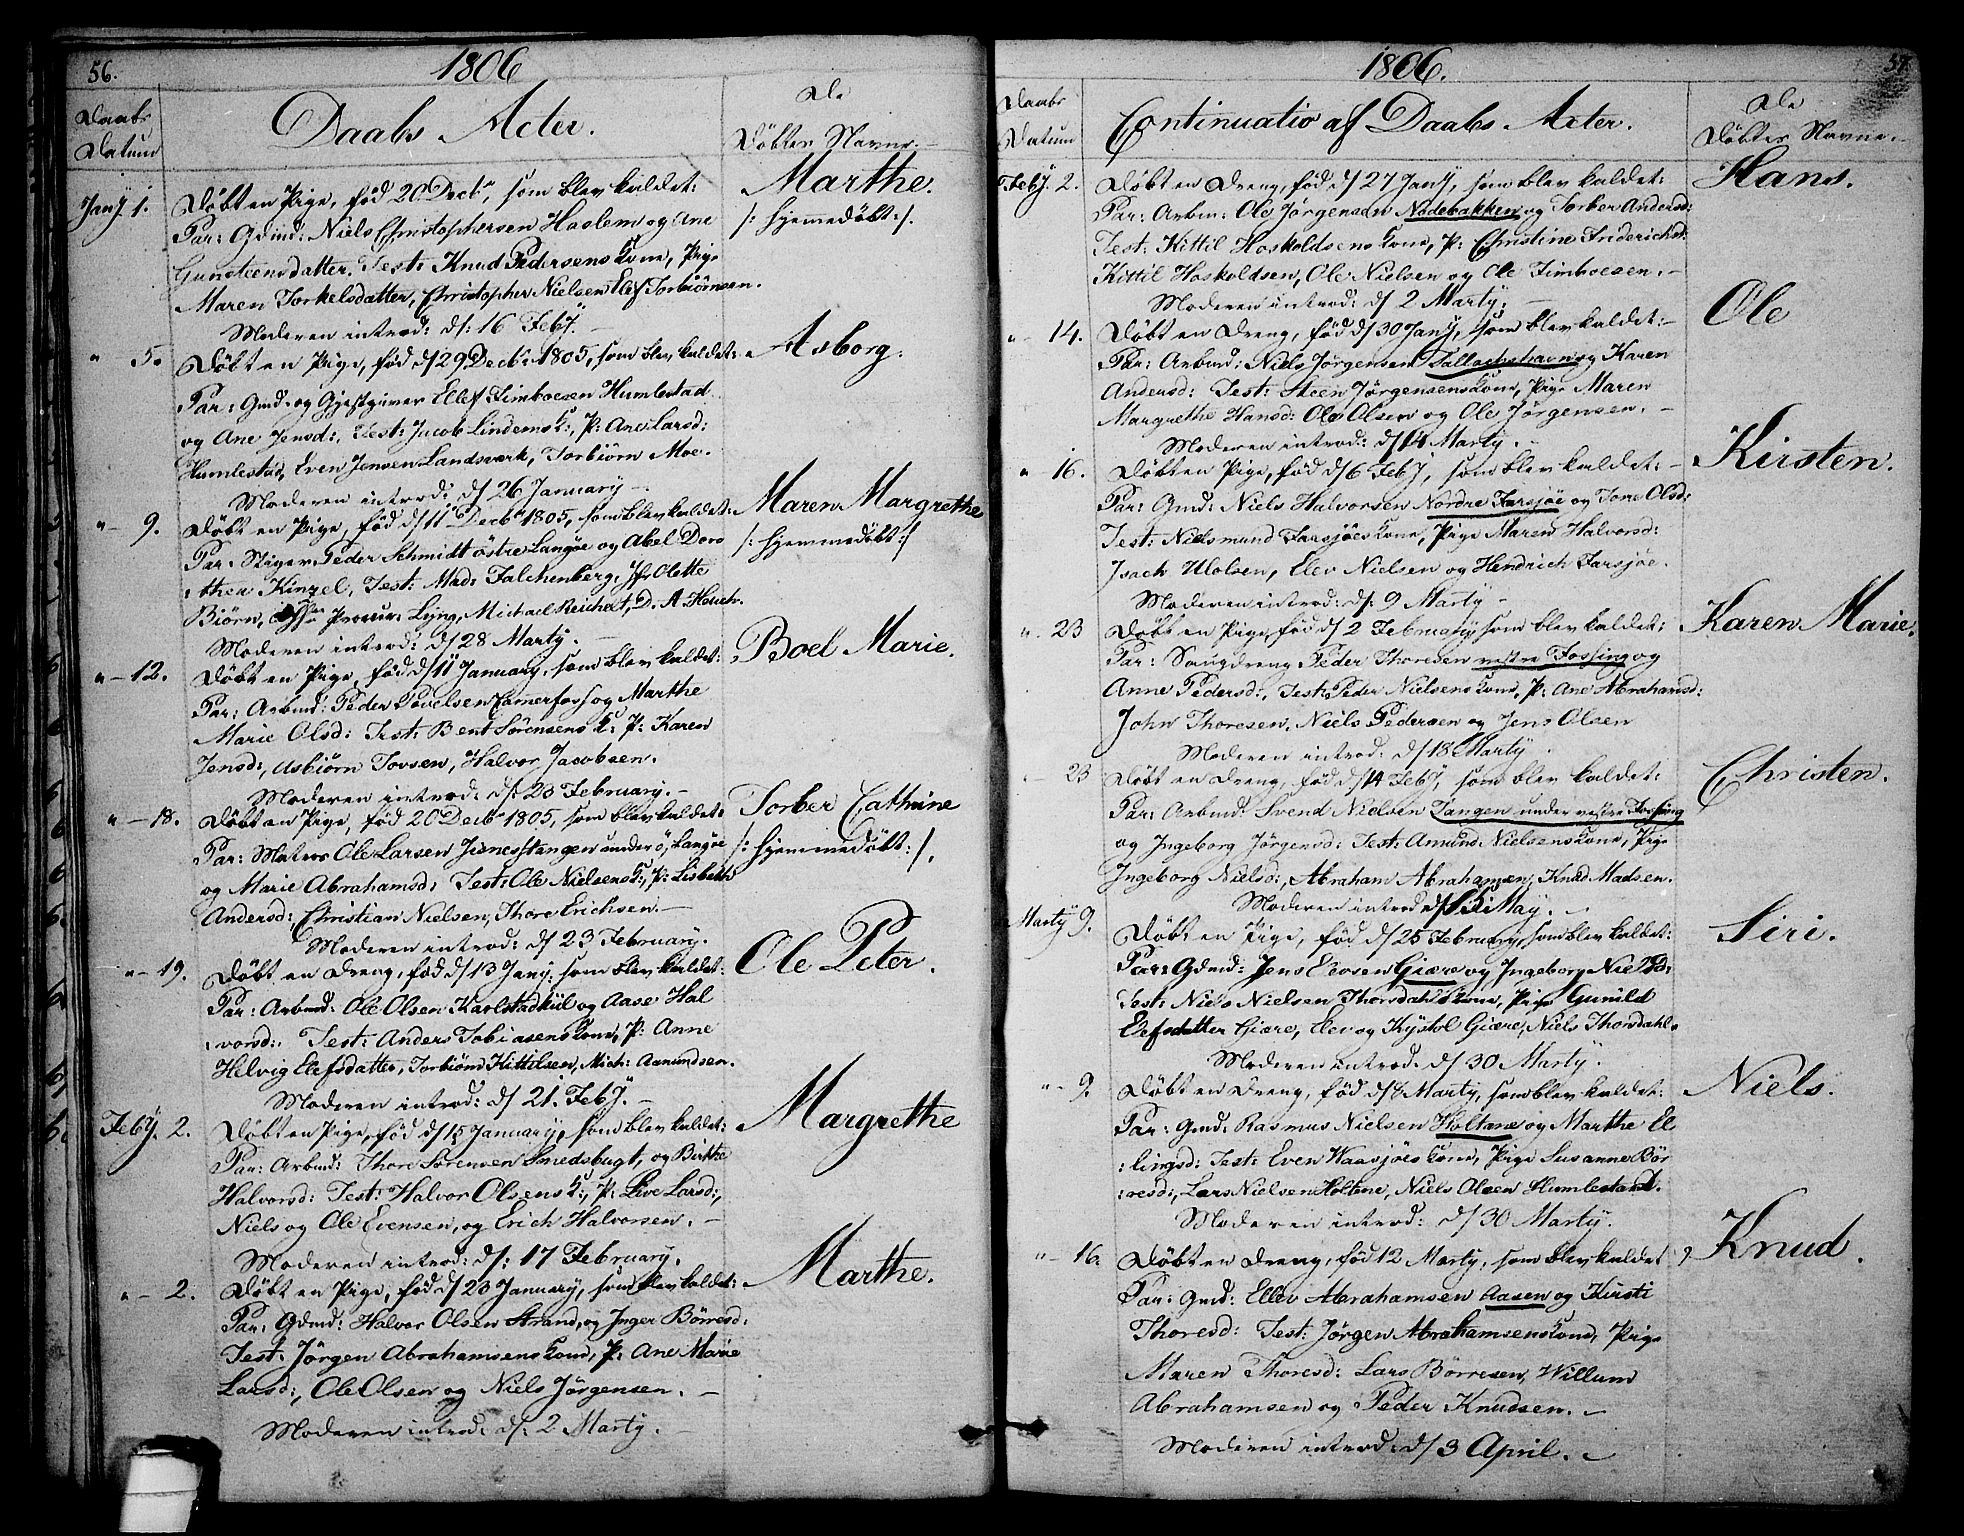 56.
1806
Daabs Datum
Daabs Acter.
De Døbtes Navne.
Jany. 1.
Døbt en Pige, fød 20 Decbr, som blev kaldet:
Marthe.
Par: Gdmd: Niels Christophersen Haslem og Ane
/: hjemedøbt :/.
Gunsteensdatter. Test: Knud Pedersens Kone, Pige
Maren Torkelsdatter, Christopher Nielsen Elef Torbiörnsen.
Moderen introd: d: 16 Feby.
" 5.
Døbt en Pige, fød d 29 Decbr 1805, som blev kaldet:
Asborg.
Par: Gmd. og Gjestgiver Ellef Simboesen Humlestad
og Ane Jensd:, Test: Jacob Lindems K:, P: Ane Larsd:
Humlestad, Even Jensen Landsværk, Torbiörn Moe.
Moderen introd: d 26 January
" - 9.
Døbt en Pige, fød d 11 Decbr 1805, som blev kaldet:
Maren Margrethe
Par. Stiger Peder Schmidt östre Langöe og Abel Doro
/: hjemmedøbt :/
:thea Kinzel, Test: Mad: Falchenberg, Jfr Olette
Biörn, Procur: Lyng, Michael Reichelt, D. A Heuch.
Moderen introd: d 28 Marty.
" - 12.
Døbt en Pige, fød d 11 January, som blev kaldet:
Boel Marie.
Par: Arbmd: Peder Povelsen Kamerfoss og Marthe
Marie Olsd: Test: Bent Sörensens K: P: Karen
Jensd:, Asbiörn Tovsen, Halvor Jacobsen.
Moderen introd: d: 23 February.
" - 18.
Døbt en Pige, fød 20 Decbr 1805, som blev kaldet:
Torber Cathrine
Par: Matros Ole Larsen Jiernesstangen under ö, Langöe
/: hjemmedøbt :/.
og Marie Abrahamsd: Test: Ole Nielsens K:, P: Lisbeth
Andersd:, Christian Nielsen, Thore Erichsen.
Moderen introd: d 23 February.
" - 19.
Døbt en Dreng, fød d 13 Jany, som blev kaldet:
Ole Peter.
Par: Arbmd: Ole Olsen Karlstadkiil og Aase Hal
:vorsd: Test: Anders Tobiasens Kone, P: Anne
Helvig Elefsdatter, Torbiörn Kittilsen, Mich: Aamundsen.
Moderen introd: d 21. Feby.
Feby. 2.
Døbt en Pige, fød d 15 January, som blev kaldet:
Margrethe
Par: Arbmd: Thore Sörensen Smedsbugt, og Birthe
Halvorsd: Test: Halvor Olsens K:, P: Live Larsd:,
Niels og Ole Evensen, og Erich Halvorsen.
Moderen introd: d: 17 February.
" - 2.
Døbt en Pige, fød d 23 January, som blev kaldet:
Marthe.
Par: Gdmd: Halvor Olsen Strand, og Inger Börresd:
Test: Jörgen Abrahamsens Kone, P: Ane Marie
Larsd:, Ole Olsen og Niels Jörgensen.
Moderen introd: d: 2 Marty.
57
1806.
Daabs Datum
Continuatio af Daabs Acter.
De Døbtes Navne.
Feby. 2.
Døbt en Dreng, fød d 27 Jany, som blev kaldet:
Hans.
Par: Arbm: Ole Jörgensen Nödebakken og Torber Andersd:
Test: Kittil Hoskoldsens Kone, P: Christine Friderichsd:
Kittil Hoskoldsen, Ole Nielsen og Ole Simboesen.
Moderen introd: d 2 Marty.
" - 14.
Døbt en Dreng, fød d 30 Jany, som blev kaldet:
Ole
Par: Arbmd: Niels Jörgensen Tallachshavn og Karen
Andersd: Test: Steen Jörgensens Kone, Pige Maren
Margrethe Hansd: Ole Olsen og Ole Jörgensen.
Moderen introd: d 14 Marty.
" - 16.
Døbt en Pige, fød d 6 Feby, som blev kaldet:
Kirsten.
Par: Gmd: Niels Halvorsen Nordre Farsjöe og Tone Olsd:
Test: Nielsmund Farsjöes Kone, Pige Maren Halvorsd:
Isach Ulolsen, Elev Nielsen og Hendrich Farsjöe.
Moderen introd: d: 9 Marty
" - 23
Døbt en Pige, fød d 2 February, som blev kaldet:
Karen Marie.
Par: Saugdreng Peder Thoresen vestre Fossing og
Anne Pedersd:, Test: Peder Nielsens Kone, P: Ane Abrahamsd:
John Thoresen, Niels Pedersen og Jens Olsen
Moderen introd: d 18 Marty.
- 23
Døbt en Dreng, fød d 14 Feby, som blev kaldet:
Christen.
Par: Arbmd: Svend Nielsen Tangen under vestre Fossing
og Ingeborg Jörgensd: Test: Amund Nielsens Kone, Pige
Ingeborg Nielsd:, Abraham Abrahamsen, Knud Madsen.
Moderen introd May.
Marty 9.
Døbt en Pige, fød d 25 February, som blev kaldet:
Siri.
Par: Gdmd: Jens Elevsen Giære og Ingeborg Nielsd:
Test: Niels Nielsen Thorsdahls Kone, Pige Gunild
Elefsdatter Giære, Elev og Kystol Giære, Niels Thorsdahl.
Moderen introd: d 30 Marty.
" - 9.
Døbt en Dreng, fød d 8 Marty, som blev kaldet:
Niels.
Par: Gmd: Rasmus Nielsen Holtane og Marthe El
:lingsd: Test: Even Waasjöes Kone, Pige Susanne Bör
:resd:, Lars Nielsen Holtane, Niels Olsen Humlestad.
Moderen introd: d 30 Marty.
" - 16.
Døbt en Dreng, fød 12 Marty, som blev kaldet
Knud.
Par: Gmd: Ellev Abrahamsen Aasen og Kirsti
Thoresd: Test: Jörgen Abrahamsens Kone, Pige
Maren Thoresd: Lars Börresen, Willum
Abrahamsen og Peder Knudsen.
Moderen introd: d 3 April.